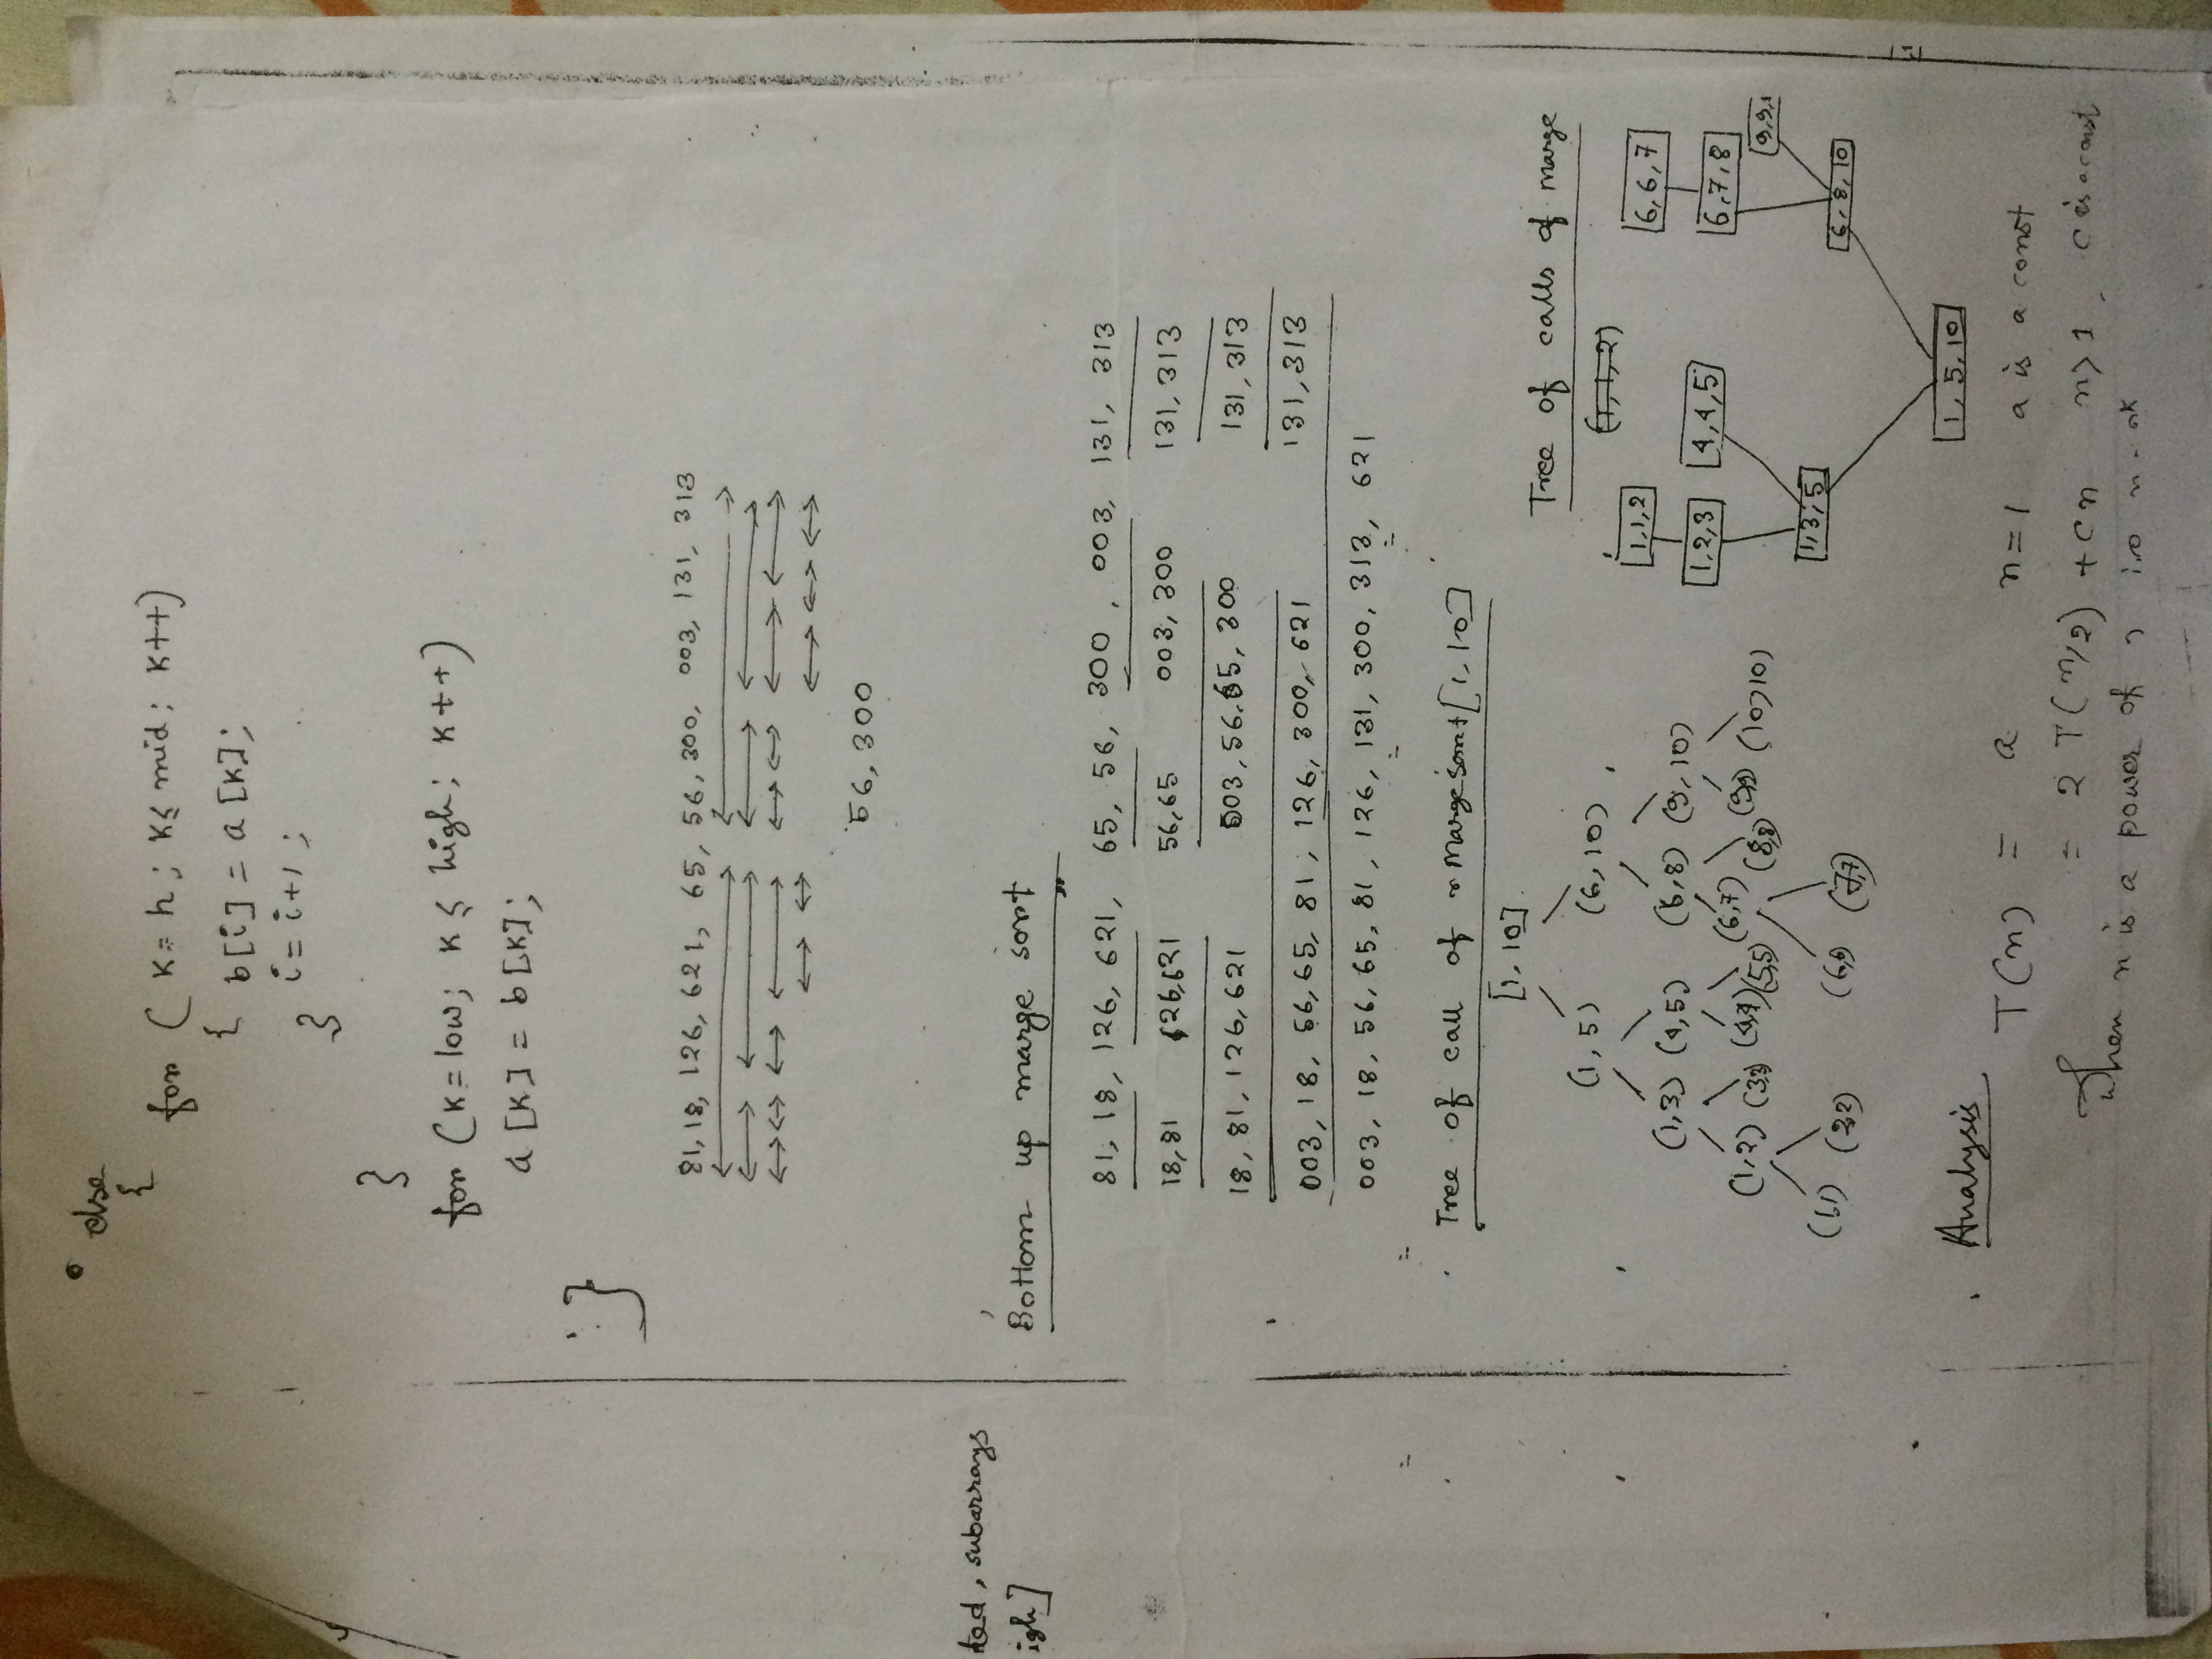 else
{
for ( K = h ; K ≤ mid ; K++)
{ b[i] = a [K];
i = i+1 ;
}
}
for (K = low; K ≤ high; K++)
a [K] = b[K];
}
81, 18, 126, 621, 65, 56, 300, 003, 131, 313
56, 300
ted, subarrays
igh]
Bottom up marge sort
81, 18, 126, 621, 65, 56, 300, 003, 131, 313
18,81 126,621 56,65 003, 300 131, 313
18, 81, 126, 621 003, 56, 65, 300 131, 313
003, 18, 56, 65, 81, 126, 300, 621 131, 313
003, 18, 56, 65, 81, 126, 131, 300, 313, 621
Tree of call of MargeSort [1, 10]
[1, 10]
(1, 5) (6, 10)
(1,3) (4,5) (6,8) (9,10)
(1,2) (3,3) (4,4) (5,5) (6,7) (8,8) (9,9) (10,10)
(1,1) (2,2) (6,6) (7,7)
Tree of calls of marge
(1,1,2)
1,1,2 6,6,7
1,2,3 4,4,5 6,7,8
9,9,
1,3,5 6,8,10
1, 5, 10
Analysis
T(n) = a n=1 a is a const
= 2 T(n/2) + cn n>1, c is a const
When n is a power of